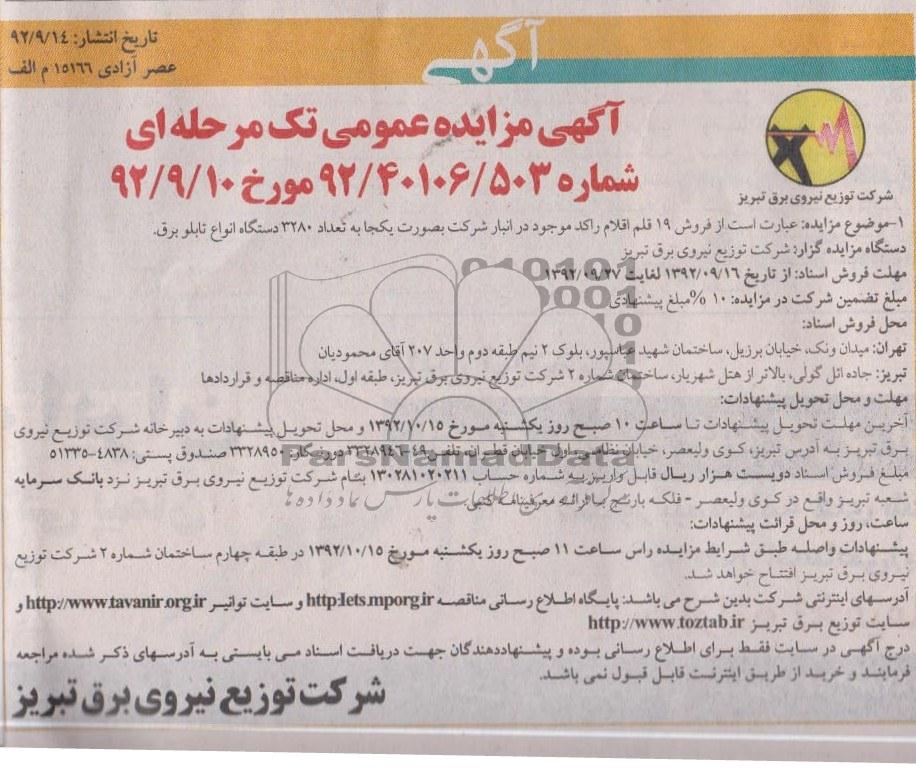 تاریخ انتشار: ۹۲/۹/۱۴
عصر آزادی ۱۵۱۶۶ م الف
آگهی
آگهی مزایده عمومی تک مرحله ای
شماره ۹۲/۴۰۱۰۶/۵۰۳ مورخ ۹۲/۹/۱۰
شرکت توزیع نیروی برق تبریز
۱-موضوع مزایده: عبارت است از فروش ۱۹ قلم اقلام راکد موجود در انبار شرکت بصورت یکجا به تعداد ۳۲۸۰ دستگاه انواع تابلو برق.
دستگاه مزایده گزار: شرکت توزیع نیروی برق تبریز
مهلت فروش اسناد: از تاریخ ۱۳۹۲/۰۹/۱۶ لغایت ۱۳۹۲/۰۹/۲۷
مبلغ تضمین شرکت در مزایده: ۱۰ %مبلغ پیشنهادی
محل فروش اسناد:
تهران: میدان ونک، خیابان برزیل، ساختمان شهید عباسپور، بلوک ۲ نیم طبقه دوم واحد ۲۰۷ آقای محمودیان
تبریز: جاده ائل گولی، بالاتر از هتل شهریار، ساختمان شماره ۲ شرکت توزیع نیروی برق تبریز، طبقه اول، اداره مناقصه و قراردادها
مهلت و محل تحویل پیشنهادات:
آخرین مهلت تحویل پیشنهادات تا ساعت ۱۰ صبح روز یکشنبه مورخ ۱۳۹۲/۱۰/۱۵ و محل تحویل پیشنهادات به دبیرخانه شرکت توزیع نیروی
برق تبریز به آدرس تبریز، کوی ولیعصر، خیابان نظامی، اول خیابان قطران، تلفن ۴۹-۳۳۲۸۹۴۶ دورنگار: ۳۳۲۸۹۵۰ صندوق پستی: ۴۸۳۸-۵۱۳۳۵
مبلغ فروش اسناد دویست هزار ریال قابل واریز به شماره حساب ۱۳۰۲۸۱۰۲۰۲۱۱ بنام شرکت توزیع نیروی برق تبریز نزد بانک سرمایه
شعبه تبریز واقع در کوی ولیعصر - فلکه بارنج با ارائه معرفینامه کتبی.
ساعت، روز و محل قرائت پیشنهادات:
پیشنهادات واصله طبق شرایط مزایده راس ساعت ۱۱ صبح روز یکشنبه مورخ ۱۳۹۲/۱۰/۱۵ در طبقه چهارم ساختمان شماره ۲ شرکت توزیع
نیروی برق تبریز افتتاح خواهد شد.
آدرسهای اینترنتی شرکت بدین شرح می باشد: پایگاه اطلاع رسانی مناقصه http:iets.mporg.ir و سایت توانیر http://www.tavanir.org.ir و
سایت توزیع برق تبریز http://www.toztab.ir
درج آگهی در سایت فقط برای اطلاع رسانی بوده و پیشنهاددهندگان جهت دریافت اسناد می بایستی به آدرسهای ذکر شده مراجعه
فرمایند و خرید از طریق اینترنت قابل قبول نمی باشد.
شرکت توزیع نیروی برق تبریز
ParsNamadData